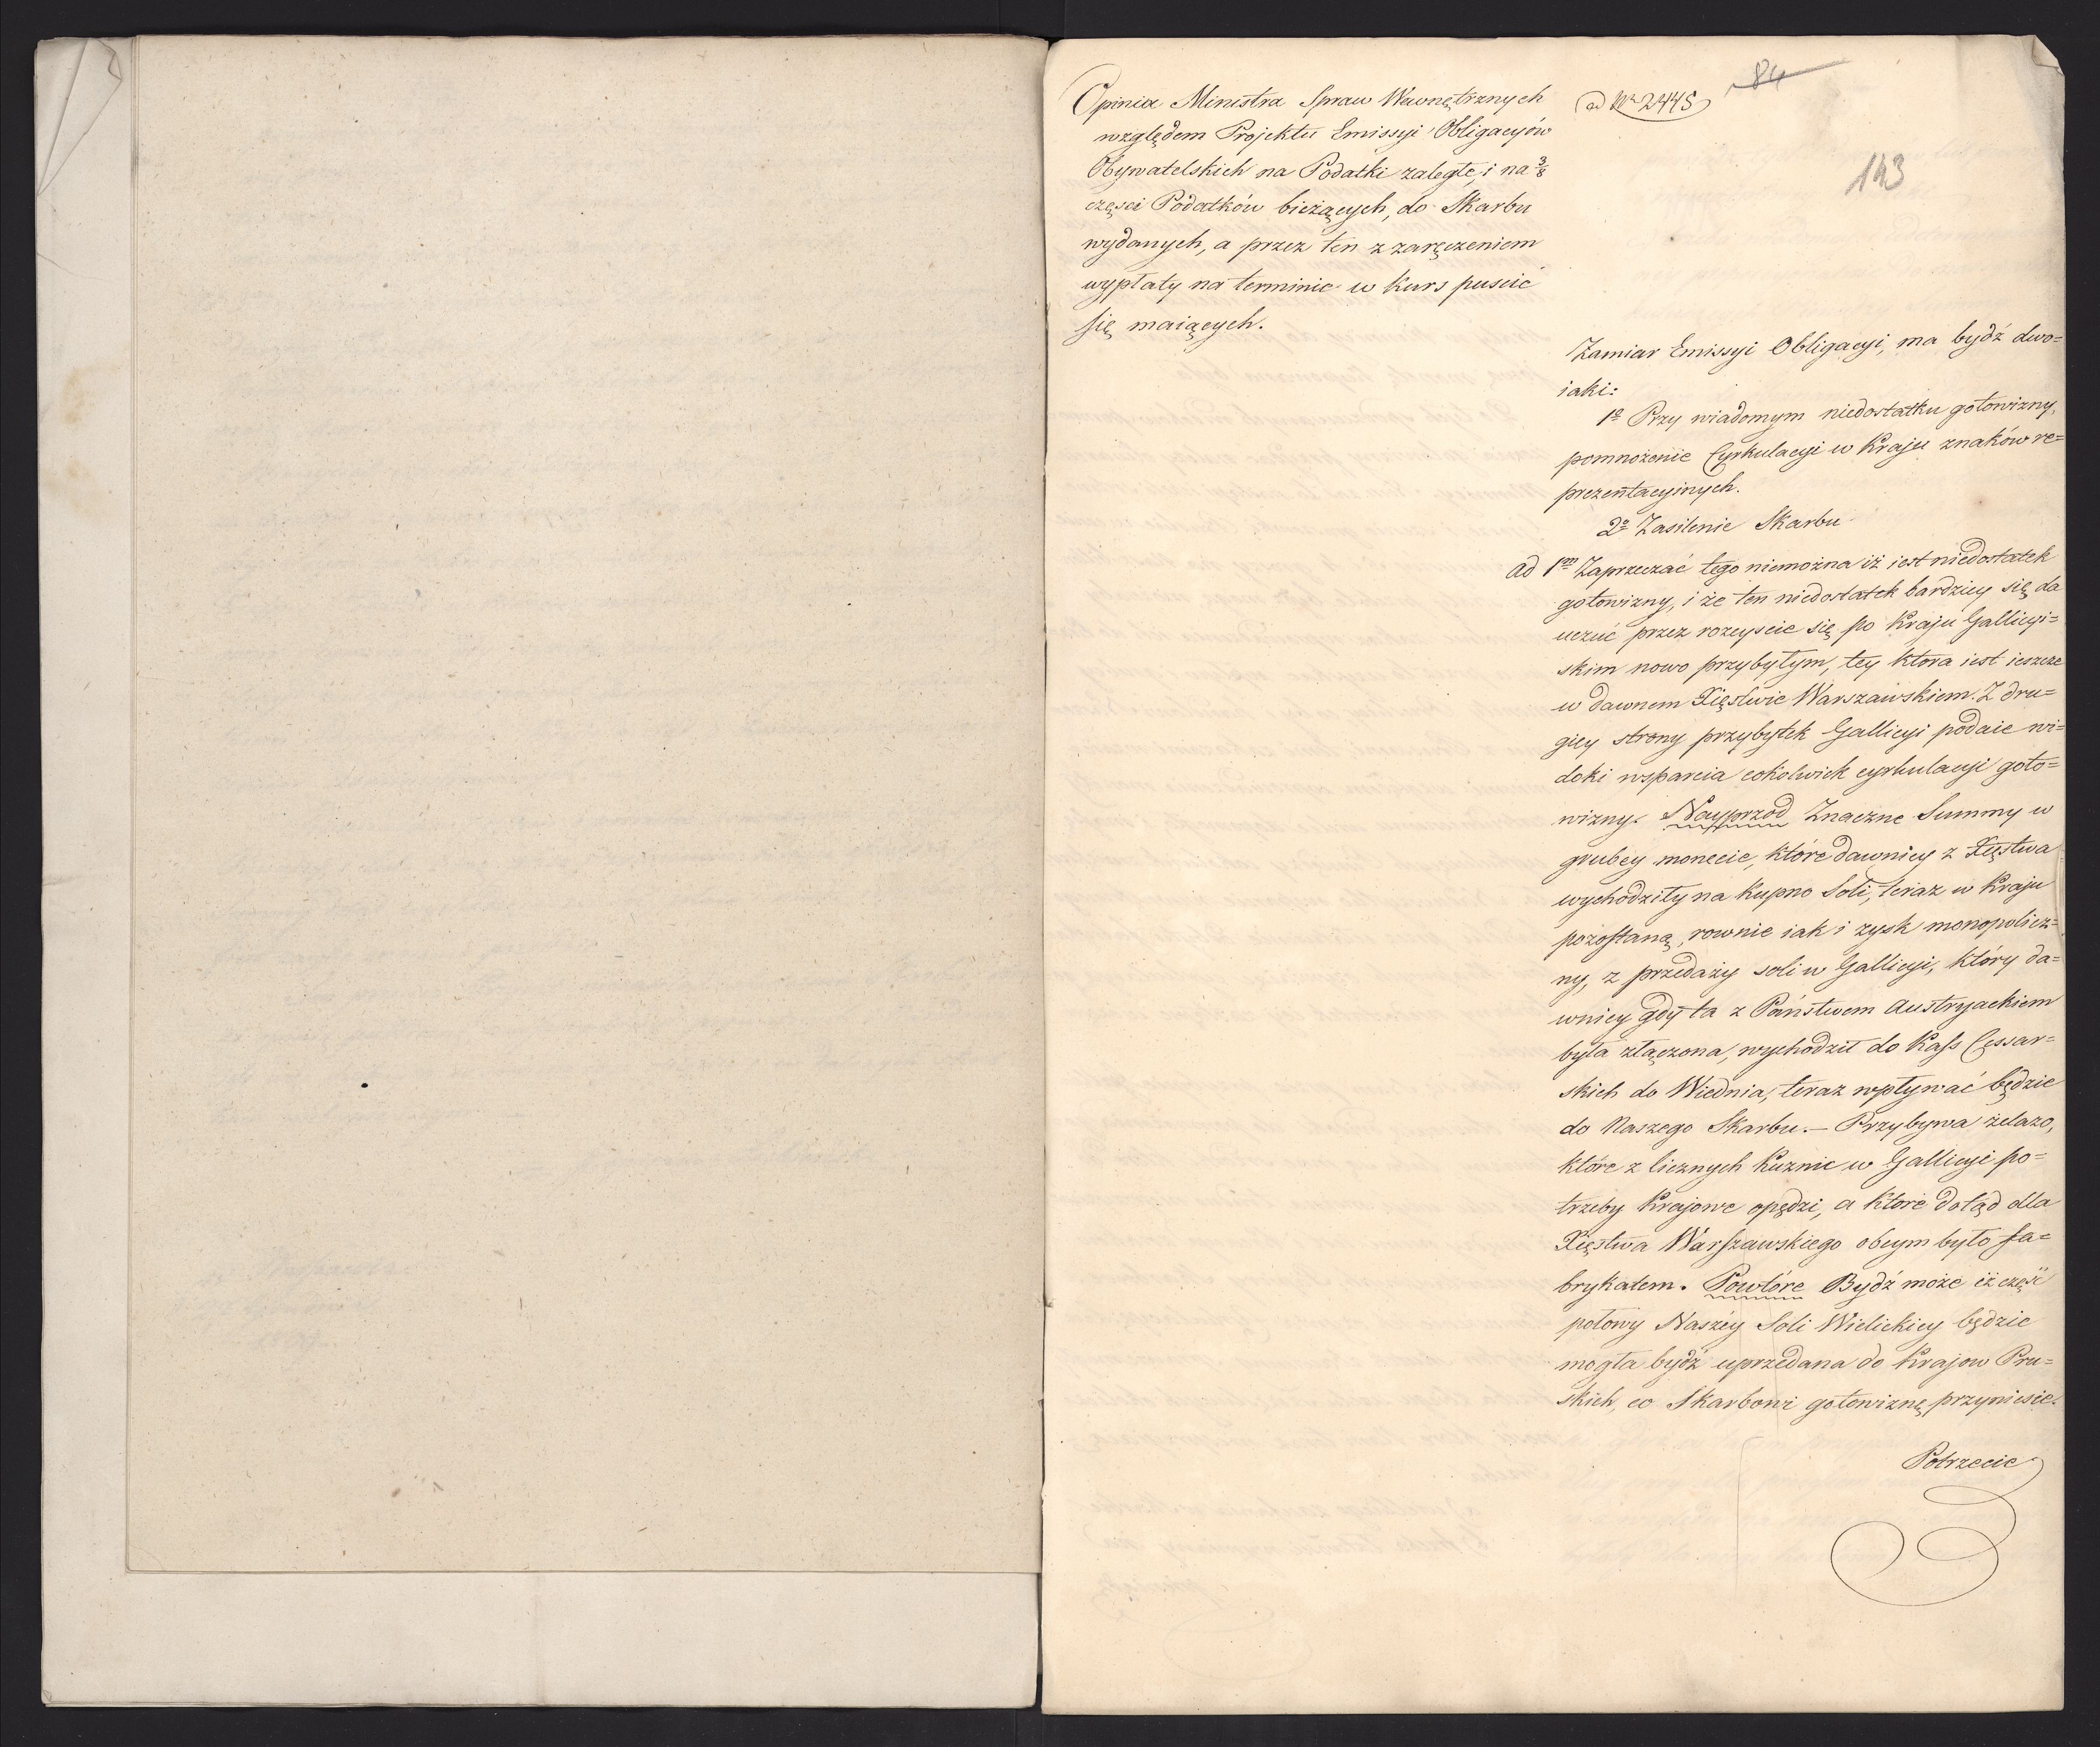 Opinia Ministra Spraw Wewnętrznych
względem Projektu Emissyi Obligacyów
Obywatelskich na Podatki zaległe, i na 3/8
części Podatków bieżących, do Skarbu
wydanych, a przez ten z zaręczeniem
wypłaty na terminie w kurs puscić
się maiących.
ad Nr 2445
84
143
Zamiar Emissyi Obligacyi, ma bydź dwo=
iaki:
1o Przy wiadomym niedostatku gotowizny,
pomnożenie Cyrkulacyi w Kraju znaków re=
prezentacyinych.
2o Zasilenie Skarbu
ad 1m Zaprzeczać tego niemożna iż iest niedostatek
gotowizny, i że ten niedostatek bardziey się da
uczuć przez rozeyscie się po Kraju Gallicyi=
skim nowo przybyłym, tey ktora iest ieszcze
w dawnem Xięstwie Warszawskiem. Z dru=
giey strony przybytek Gallicyi podaie wi=
doki wsparcia cokolwiek cyrkulacyi goto=
wizny. Nayprzod Znaczne Summy w
grubey monecie, które dawniey z Xięstwa
wychodziły na kupno Soli, teraz w Kraju
pozostaną, rownie iak i zysk monopolicz=
ny, z przedaży soli w Gallicyi, który da=
wniey gdy ta z Państwem Austryackiem
była złączona, wychodził do Kass Cessar=
skich do Wiednia, teraz wpływać będzie
do Naszego Skarbu.— Przybywa żelazo,
które z licznych Kuznic w Gallicyi po=
trzeby Krajowe opędzi, a ktore dotąd dla
Xięstwa Warszawskiego obcym było fa=
brykatem. Powtóre Bydź może iż część
połowy Naszéy Soli Wielickiey będzie
mogła bydź uprzedana do Krajow Pru=
skich, co Skarbowi gotowiznę przyniesie.
Potrzecie